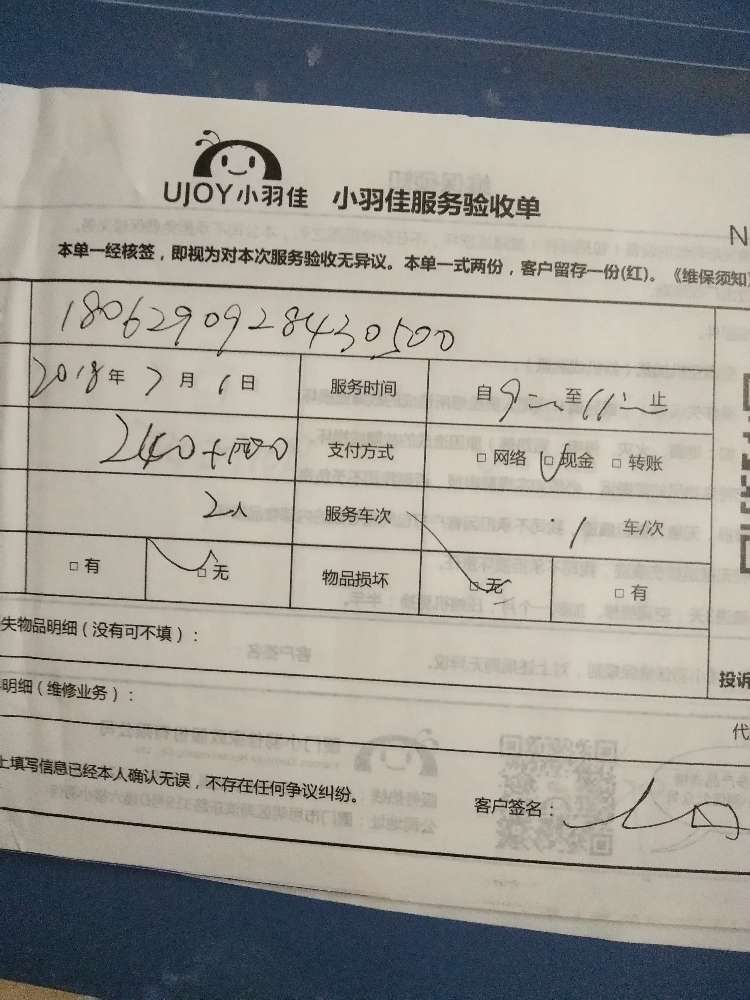 UJOY小羽佳 小羽佳服务验收单
N
本单一经核签，即视为对本次服务验收无异议。本单一式两份，客户留存一份(红)。《维保须知》
1806290928430500
2018年7月1日 服务时间 自9 至11 止
240 支付方式 □网络 □现金 □转账
2人 服务车次 1 车/次
□有 □无 物品损坏 □无 □有
失物品明细（没有可不填）：
明细（维修业务）： 投诉
代
上填写信息已经本人确认无误，不存在任何争议纠纷。 客户签名：